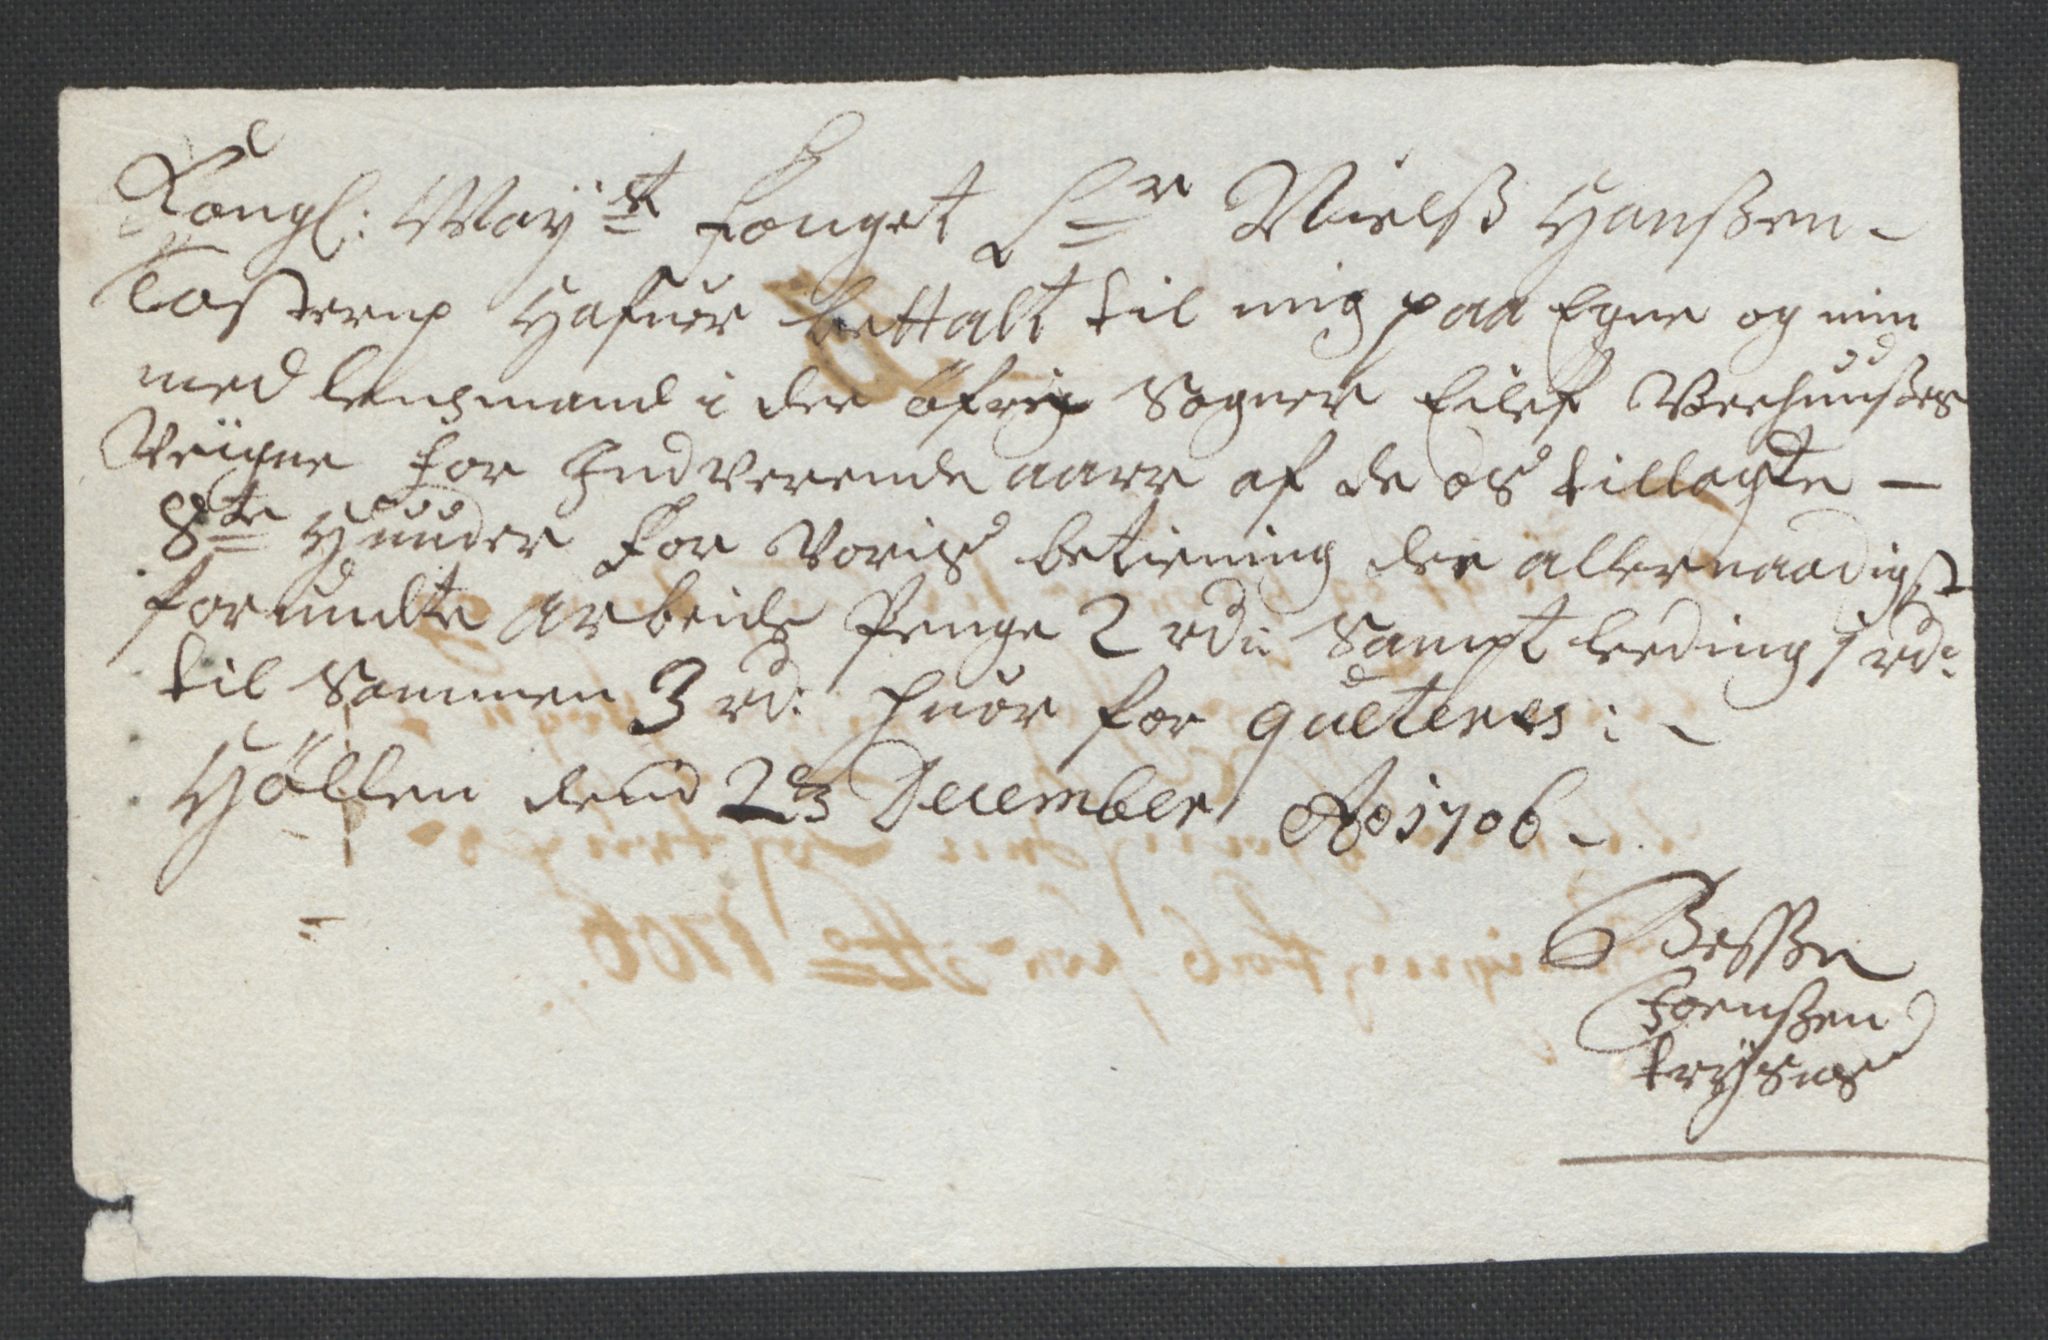 Kongl: May:st Fouget Sr Nielß Hanßen
Tosterup Hafuer bettalt til mig paa Egne og min
med lenßmand i det öfrig Sogner Eilef Veehuußes
Veigne for Indverende aare af de os tillagte
Ste Huuder for Voris betiening der allernaadigst
forundte Arbeids Penge 2 rd: Sampt leeding 1 rd:
til Sammen 3 rd: huor for queteres:
Höllen dend 23 December Ao 1706
Toenßen